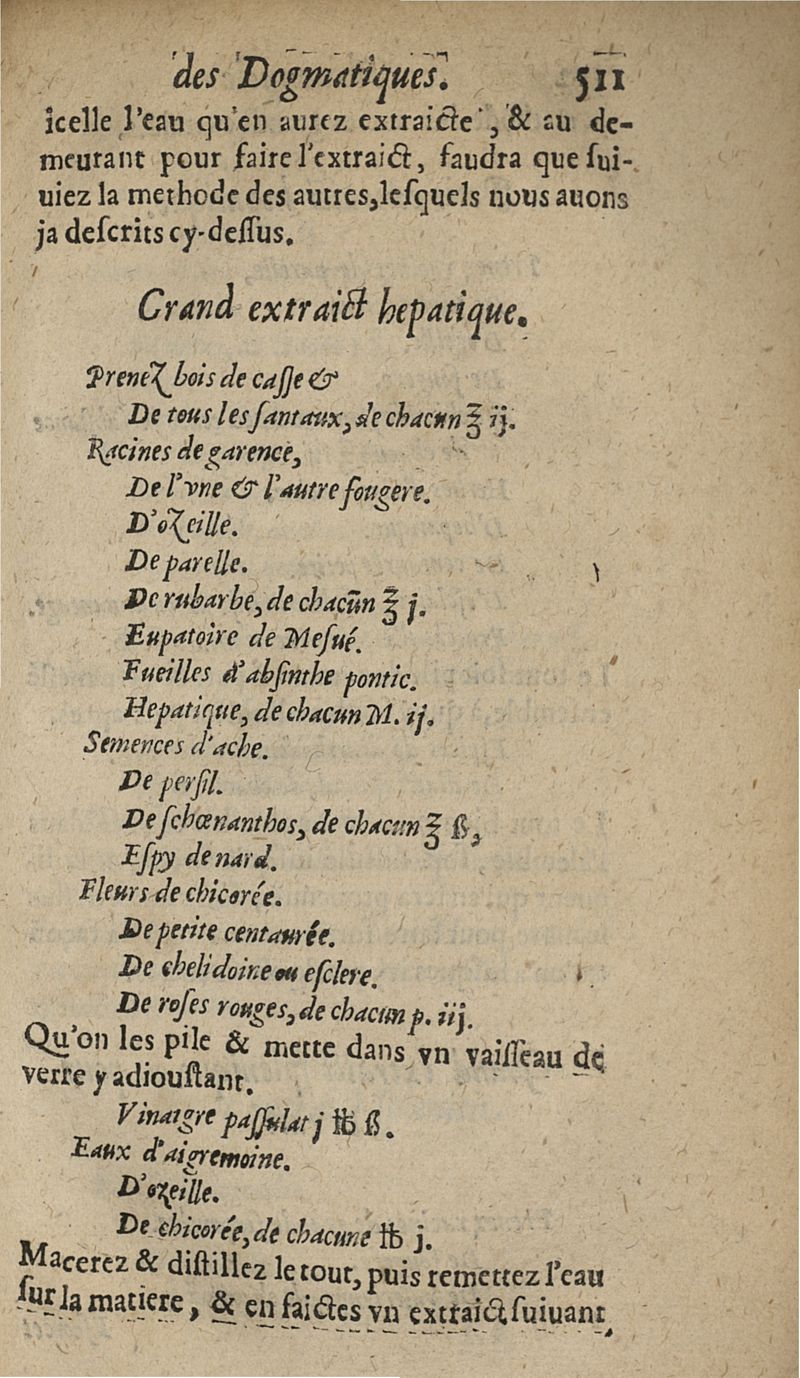 des Dogmatiques. 511
icelle l'eau qu'en aurez extraicte, & au de-
meurant pour faire l'extraict, faudra que ſui-
uiez la methode des autres, leſquels nous auons
ja deſcrits cy-deſſus.
Grand extraict hepatique.
Prenez bois de caſſe &
De tous les ſantaux, de chacun ℥ ij.
Racines de garence,
De l'vne & l'autre fougere.
D'ozeille.
De parelle.
De rubarbe, de chacũn ℥ j.
Eupatoire de Meſué.
Fueilles d'abſinthe pontic.
Hepatique, de chacun M. ij.
Semences d'ache.
De perſil.
De ſchœnanthos, de chacun ℥ ß,
Eſpy de nard.
Fleurs de chicorée.
De petite centaurée.
De chelidoine ou eſclere.
De roſes rouges, de chacun p. iij.
Qu'on les pile & mette dans vn vaiſſeau de
verre y adiouſtant.
Vinaigre paſſulat j ℔ ß.
Eaux d'aigremoine.
D'ozeille.
De chicorée, de chacune ℔ j.
Macerez & diſtillez le tout, puis remettez l'eau
ſur la matiere, & en faictes vn extraict ſuiuant